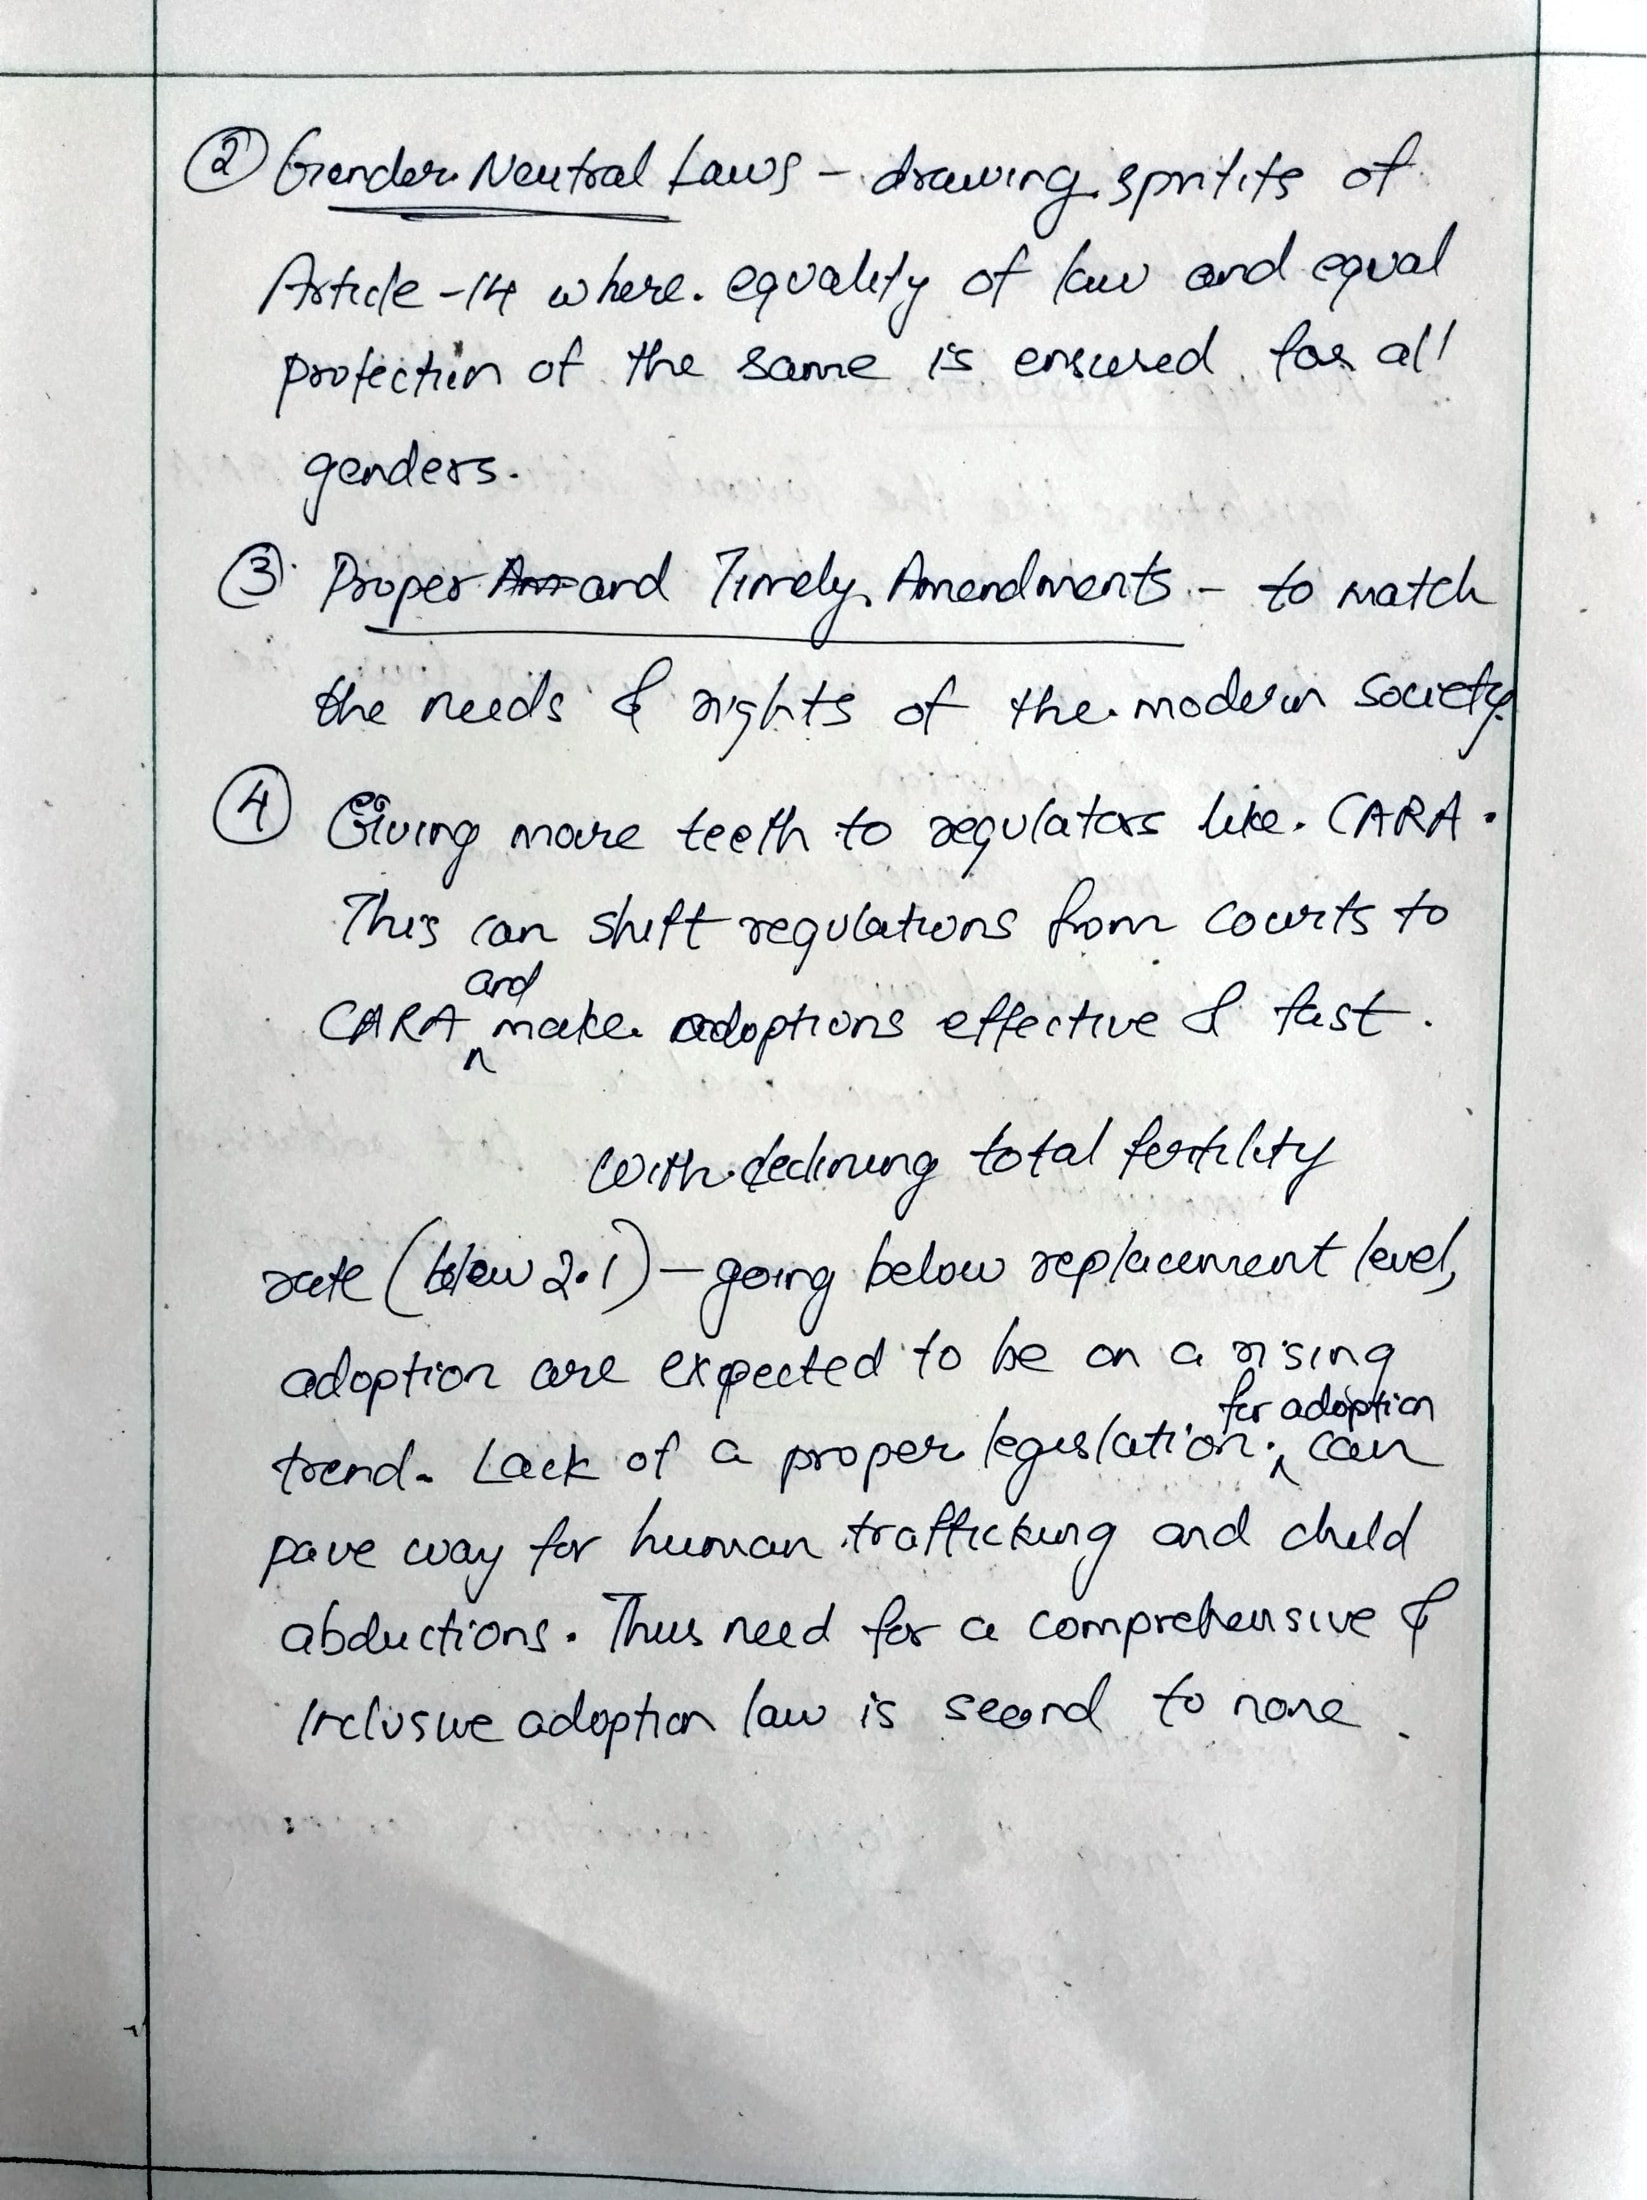 ② Gender Neutral Laws - drawing spritits of
Article -14 where equality of law and equal
protection of the same is ensured for all
genders.
③ Proper and Timely Amendments - to match
the needs & rights of the modern society
④ Giving more teeth to regulators like CARA.
This can shift regulations from courts to
CARA and make adoptions effective & fast.
With declining total fertility
rate (below 2.1) - going below replacement level,
adoption are expected to be on a rising
trend. Lack of a proper legislation for adoption can
pave way for human trafficking and child
abductions. Thus need for a comprehensive &
inclusive adoption law is second to none.